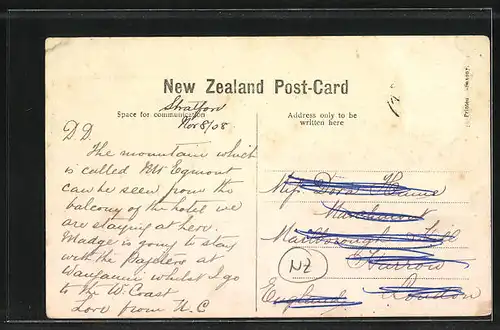 New Zealand Post-Card
Space for communication
Address only to be
written here
Stratford
Nov 8/08
D.D.
The mountain which
is called Mt Egmont
can be seen from the
balcony of the hotel we
are staying at here.
Madge is going to stay
with the Baylers at
Wanganui whilst I go
to the W. Coast
Love from N.C
Miss Dora Hame
Marlborough Hill
Harrow
England London
NZ